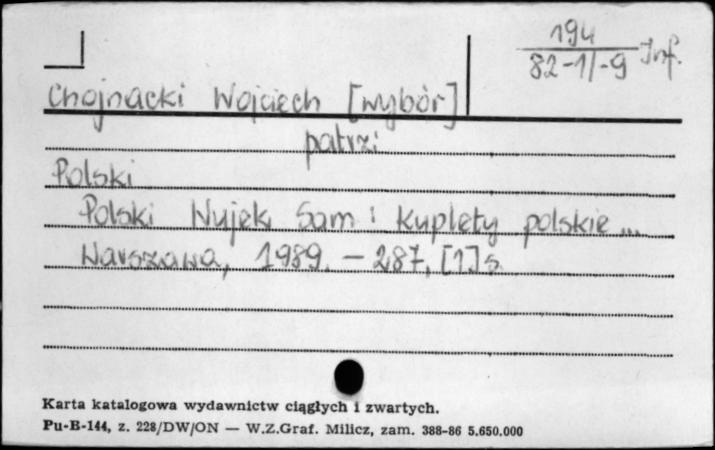 194
82-1/-9 Inf.
Chojnacki Wojciech [wybór]
patrzi
Polski
Polski Wujek Sam : kuplety polskie ...
Warszawa, 1989. - 287, [1] s
Karta katalogowa wydawnictw ciągłych i zwartych.
Pu-B-144, z. 228/DW/ON — W.Z.Graf. Milicz, zam. 388-86 5.650.000